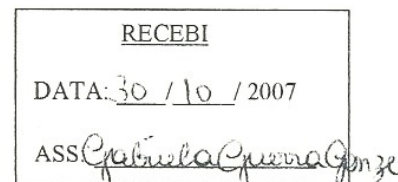 RECEBI
DATA: 30 / 10 / 2007
ASS: Gabriela Guerra Gonze